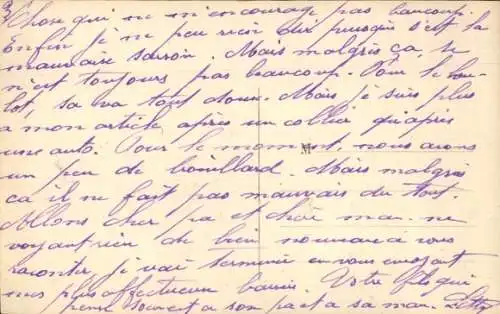 Chose qui ne m'encourage pas baucoup.
Enfin je ne peu rien dir puisque s'est la
mauvaise saison. Mais malgrés ça, se
n'est toujours pas beaucoup. Pour le bou-
lot, sa va tout doux. Mais je suis plus
a mon article après un collier qu'après
une auto. Pour le moment, nous avons
un peu de brouillard. Mais malgrés
ça il ne fait pas mauvais du tout.
Allons cher pa et chère man. ne
voyant rien de bien nouveau a vous
raconter je vais terminer en vous envoyant
mes plus affectueux baisers. Votre fils qui
pense souvent a son pa et a sa man.